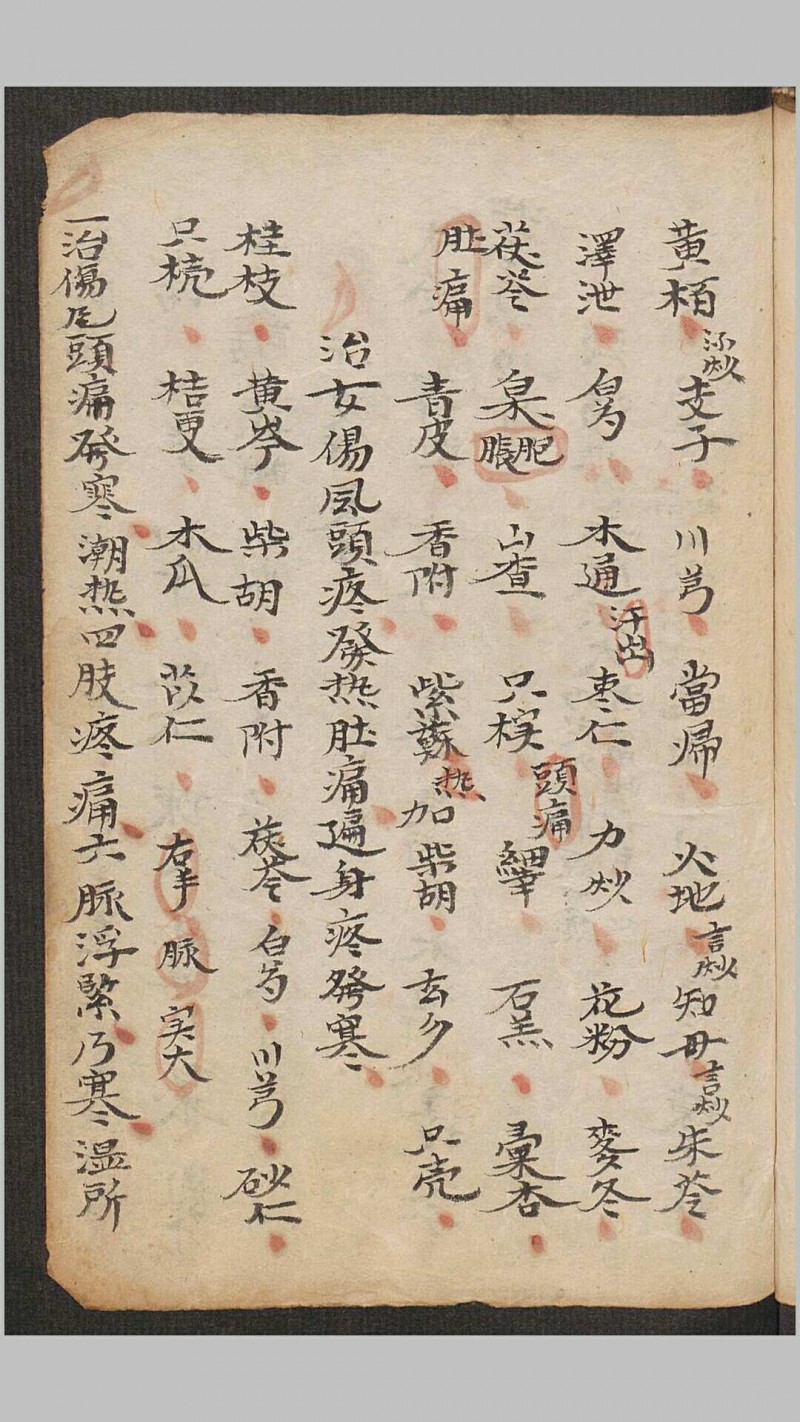 黄栢 㳄炒 支子 川芎 當帰 火地 言炒 知母 言炒 朱苓
澤泄 白芍 木通 汗出 枣仁 力炒 花粉 麥冬
茯苓 白朮 肥脹 山查 只棎 頭痛 細辛 石羔 槀杏
肚痛 青皮 香附 紫蘇 热加柴胡 玄夕 只壳
治女傷風頭疼發热肚痛遍身疼發寒
桂枝 黄岑 柴胡 香附 茯苓 白芍 川芎 砂仁
只梹 桔更 木瓜 苡仁 右手脉实大
一治傷風頭痛發寒潮热四肢疼痛六脈浮緊乃寒湿所